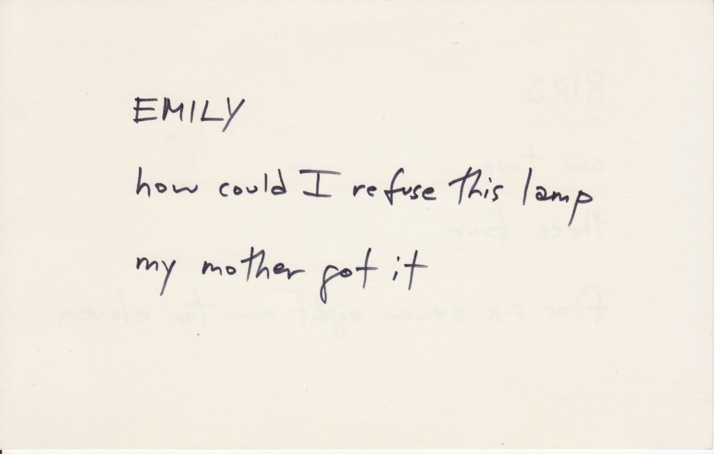 EMILY
how could I refuse this lamp
my mother got it